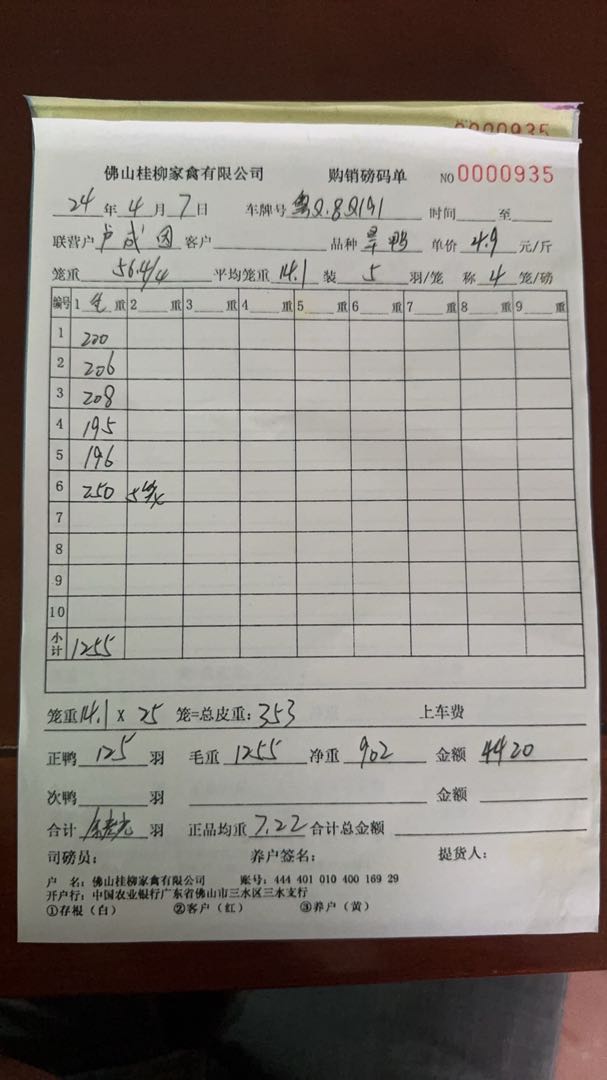 0000935
佛山桂柳家禽有限公司 购销磅码单 NO 0000935
24年4月7日 车牌号 时间 至
联营户 卢成 客户 品种 鸭 单价 4.9 元/斤
笼重 56.4/4 平均笼重 14.1 装 5 羽/笼 称 4 笼/磅
编号 1 毛 重 2 重 3 重 4 重 5 重 6 重 7 重 8 重 9 重
1 200
2 206
3 208
4 195
5 196
6 250 5
7
8
9
10
小计 1255
笼重 14.1 x 25 笼=总皮重: 353 上车费
正鸭 125 羽 毛重 1255 净重 902 金额 4420
次鸭 羽 金额
合计 羽 正品均重 7.22 合计总金额
司磅员: 养户签名: 提货人:
户 名: 佛山桂柳家禽有限公司 账号: 444 401 010 400 169 29
开户行: 中国农业银行广东省佛山市三水区三水支行
①存根(白) ②客户(红) ③养户(黄)